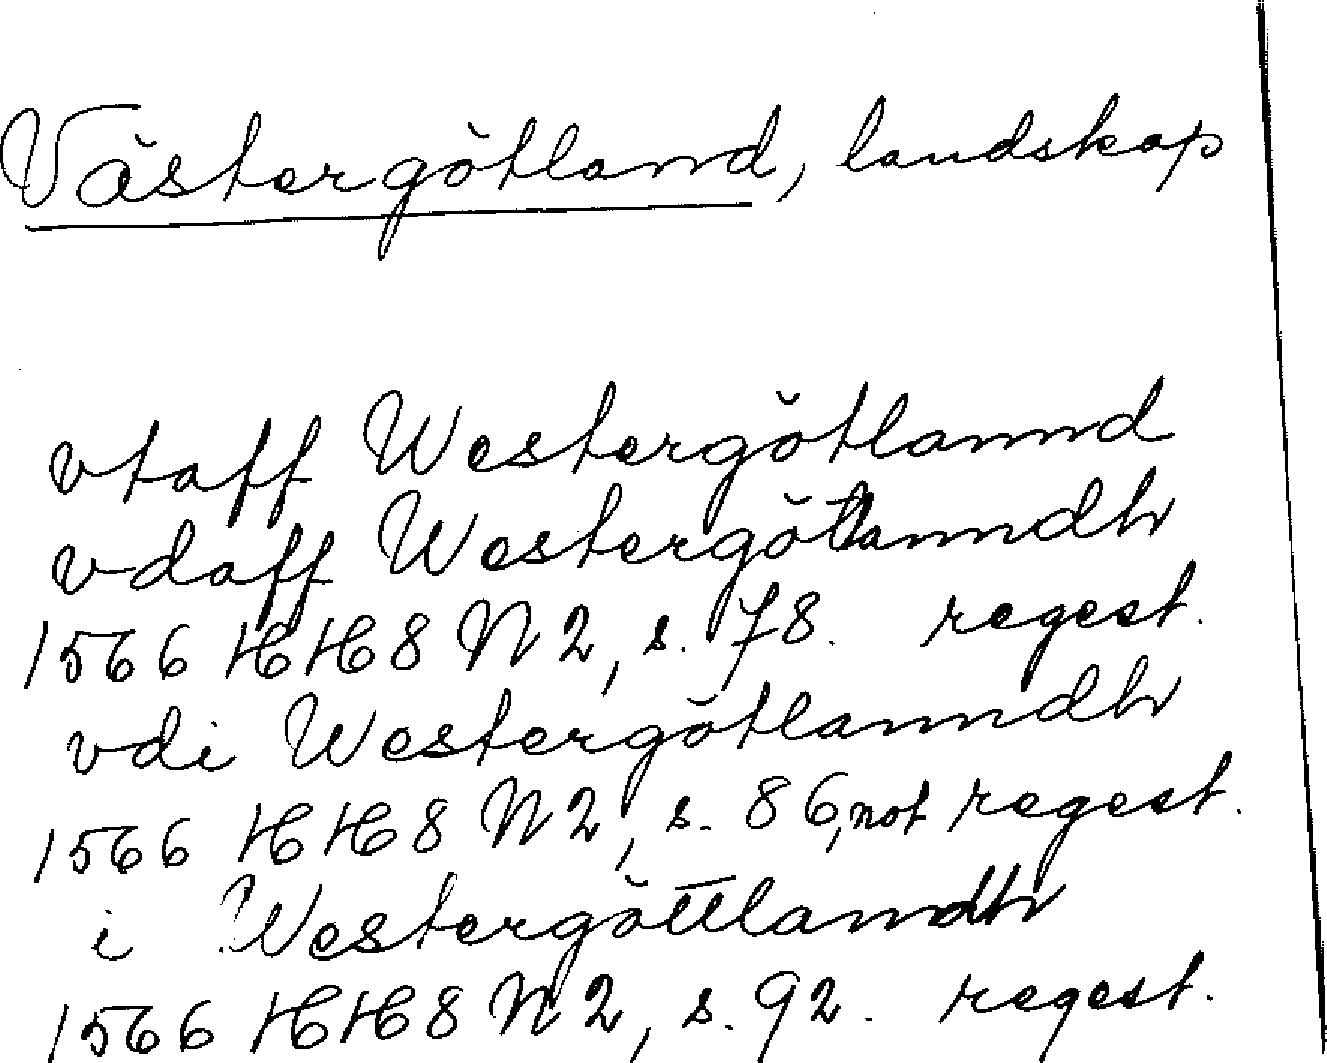 Västergötland, landskap
vtaff Westergötlannd
vdaff Westergötlanndh
1566 HH8 N2, s. 78. regest.
vdi Westergötlanndh
1566 HH8 N2, s. 86, not regest.
i Westergöttlanndh
1566 HH8 N2, s. 92. regest.